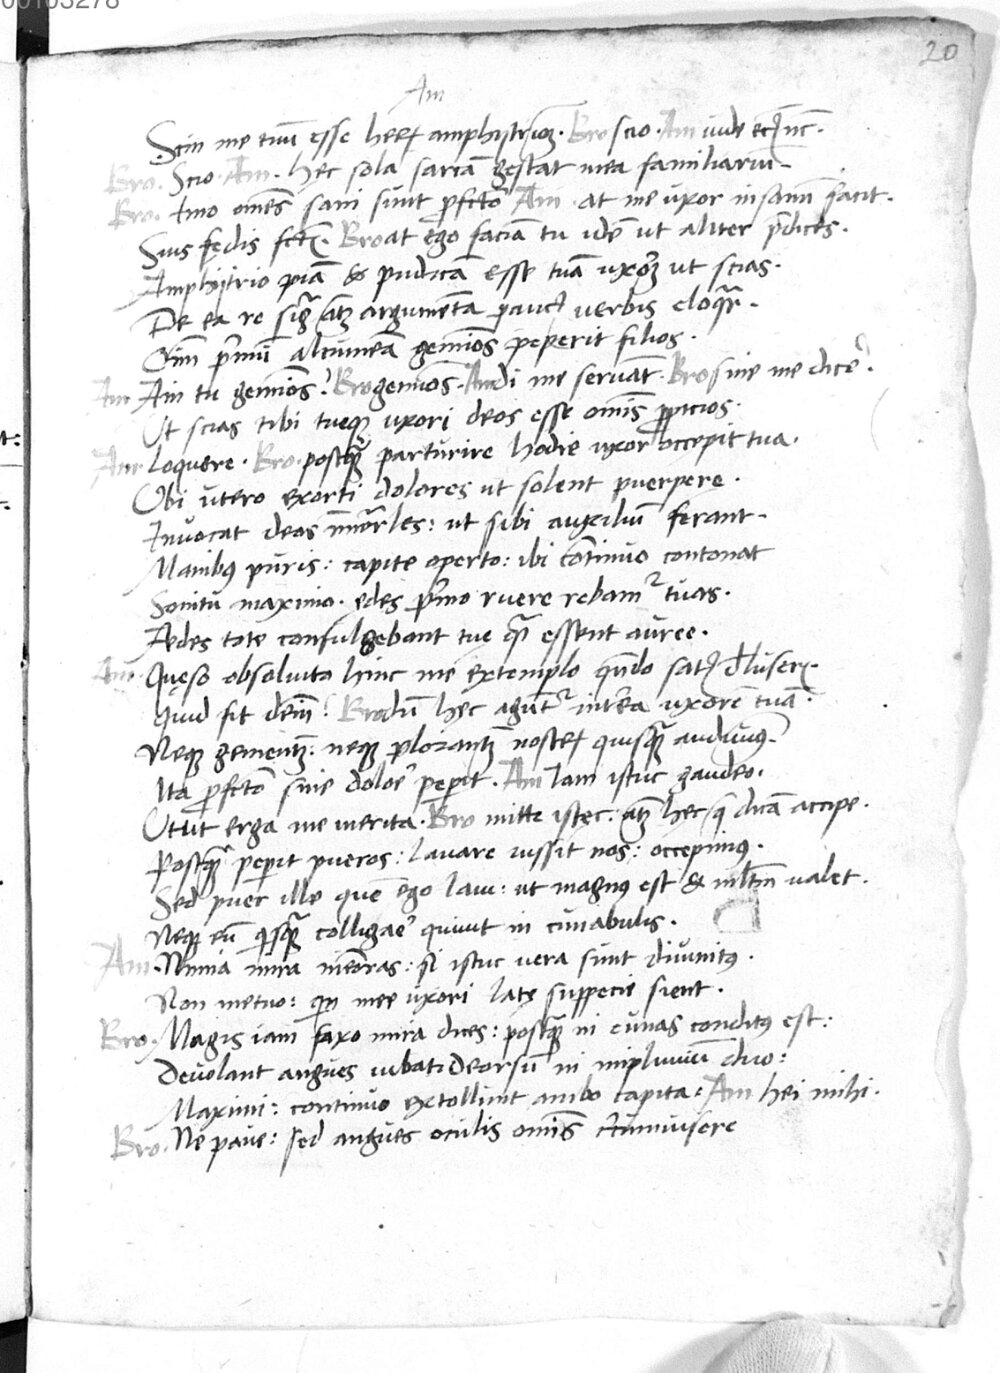 00103278
20
Am
Scin me tuũ esse herũ amphytrionẽ. Bro scio. Am uide
Bro. Scio. Am. hec sola sanã gestat mea familiariũ.
Bro. Imo omẽs sani sunt ꝓfcto Am at me uxor insanũ facit.
Suis fędis fctis. Bro at ego faciã tu idẽ ut aliter p̃dices.
Amphytrio piã & pudicã esse tuã uxorẽ ut scias.
De ea re sig̃ atqꝫ argumẽta paucis uerbis eloqr̃.
Oĩm p̃mũ alcumeã gemĩos peperit filios.
Am Ain tu gemĩos? Bro gemĩos. Am di me seruãt. Bro sine me dicẽ?
Ut scias tibi tueqꝫ uxori deos esse omĩs ꝓpicios.
Am loquere. Bro. postqꝫ̃ parturire hodie uxor occepit tua.
Ubi utero exorti dolores ut solent puerperę.
Inuocat deos ĩmor̃les: ut sibi auxiliũ ferant.
Manibꝰ puris: capite operto: ibi cõtinuo contonat
Sonitu maximo. ędes p̃mo ruere rebamʳ tuas.
Aedes tote confulgebant tue qũ essent auree.
Am. Quęso absoluita hinc me extemplo qñdo satis dluseris.
Quid fit deiñ? Bro dũ hec agũtʳ int̃ea uxorẽ tuã.
Neqꝫ gementẽ. neqꝫ plorantẽ nostrũ quisqꝫ̃ audiuimꝰ.
Ita ꝓfcto sine dolorẽ peperit. Am Iam istuc gaudeo.
Utut erga me merita. Bro mitte istec: atqꝫ hec q̃ dicã accipe.
Postqꝫ̃ peperit pueros: lauare iussit nos: occepimꝰ.
Sed puer ille quẽ ego laui: ut magnꝰ est & mltm̃ ualet.
Neqꝫ eũ qisqꝫ̃ colligaẽ quiuit in cunabulis.
Am. Nimia mira meõras: si istuc uera sunt diuinitꝰ.
Non metuo: qin mee uxori latę suppecie sient.
Bro. Magis iam faxo mira dices: postqꝫ̃ in cunas conditꝰ est:
Deuolant angues iubati deorsũ in impluuiũ duo:
Maximi: continuo extollunt ambo capita: Am hei mihi.
Bro. Ne paue: sed angues oculis omĩs circumuisere